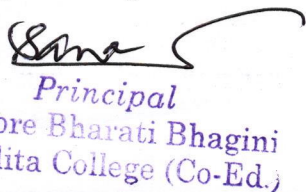 Principal
ore Bharati Bhagini
lita College (Co-Ed.)